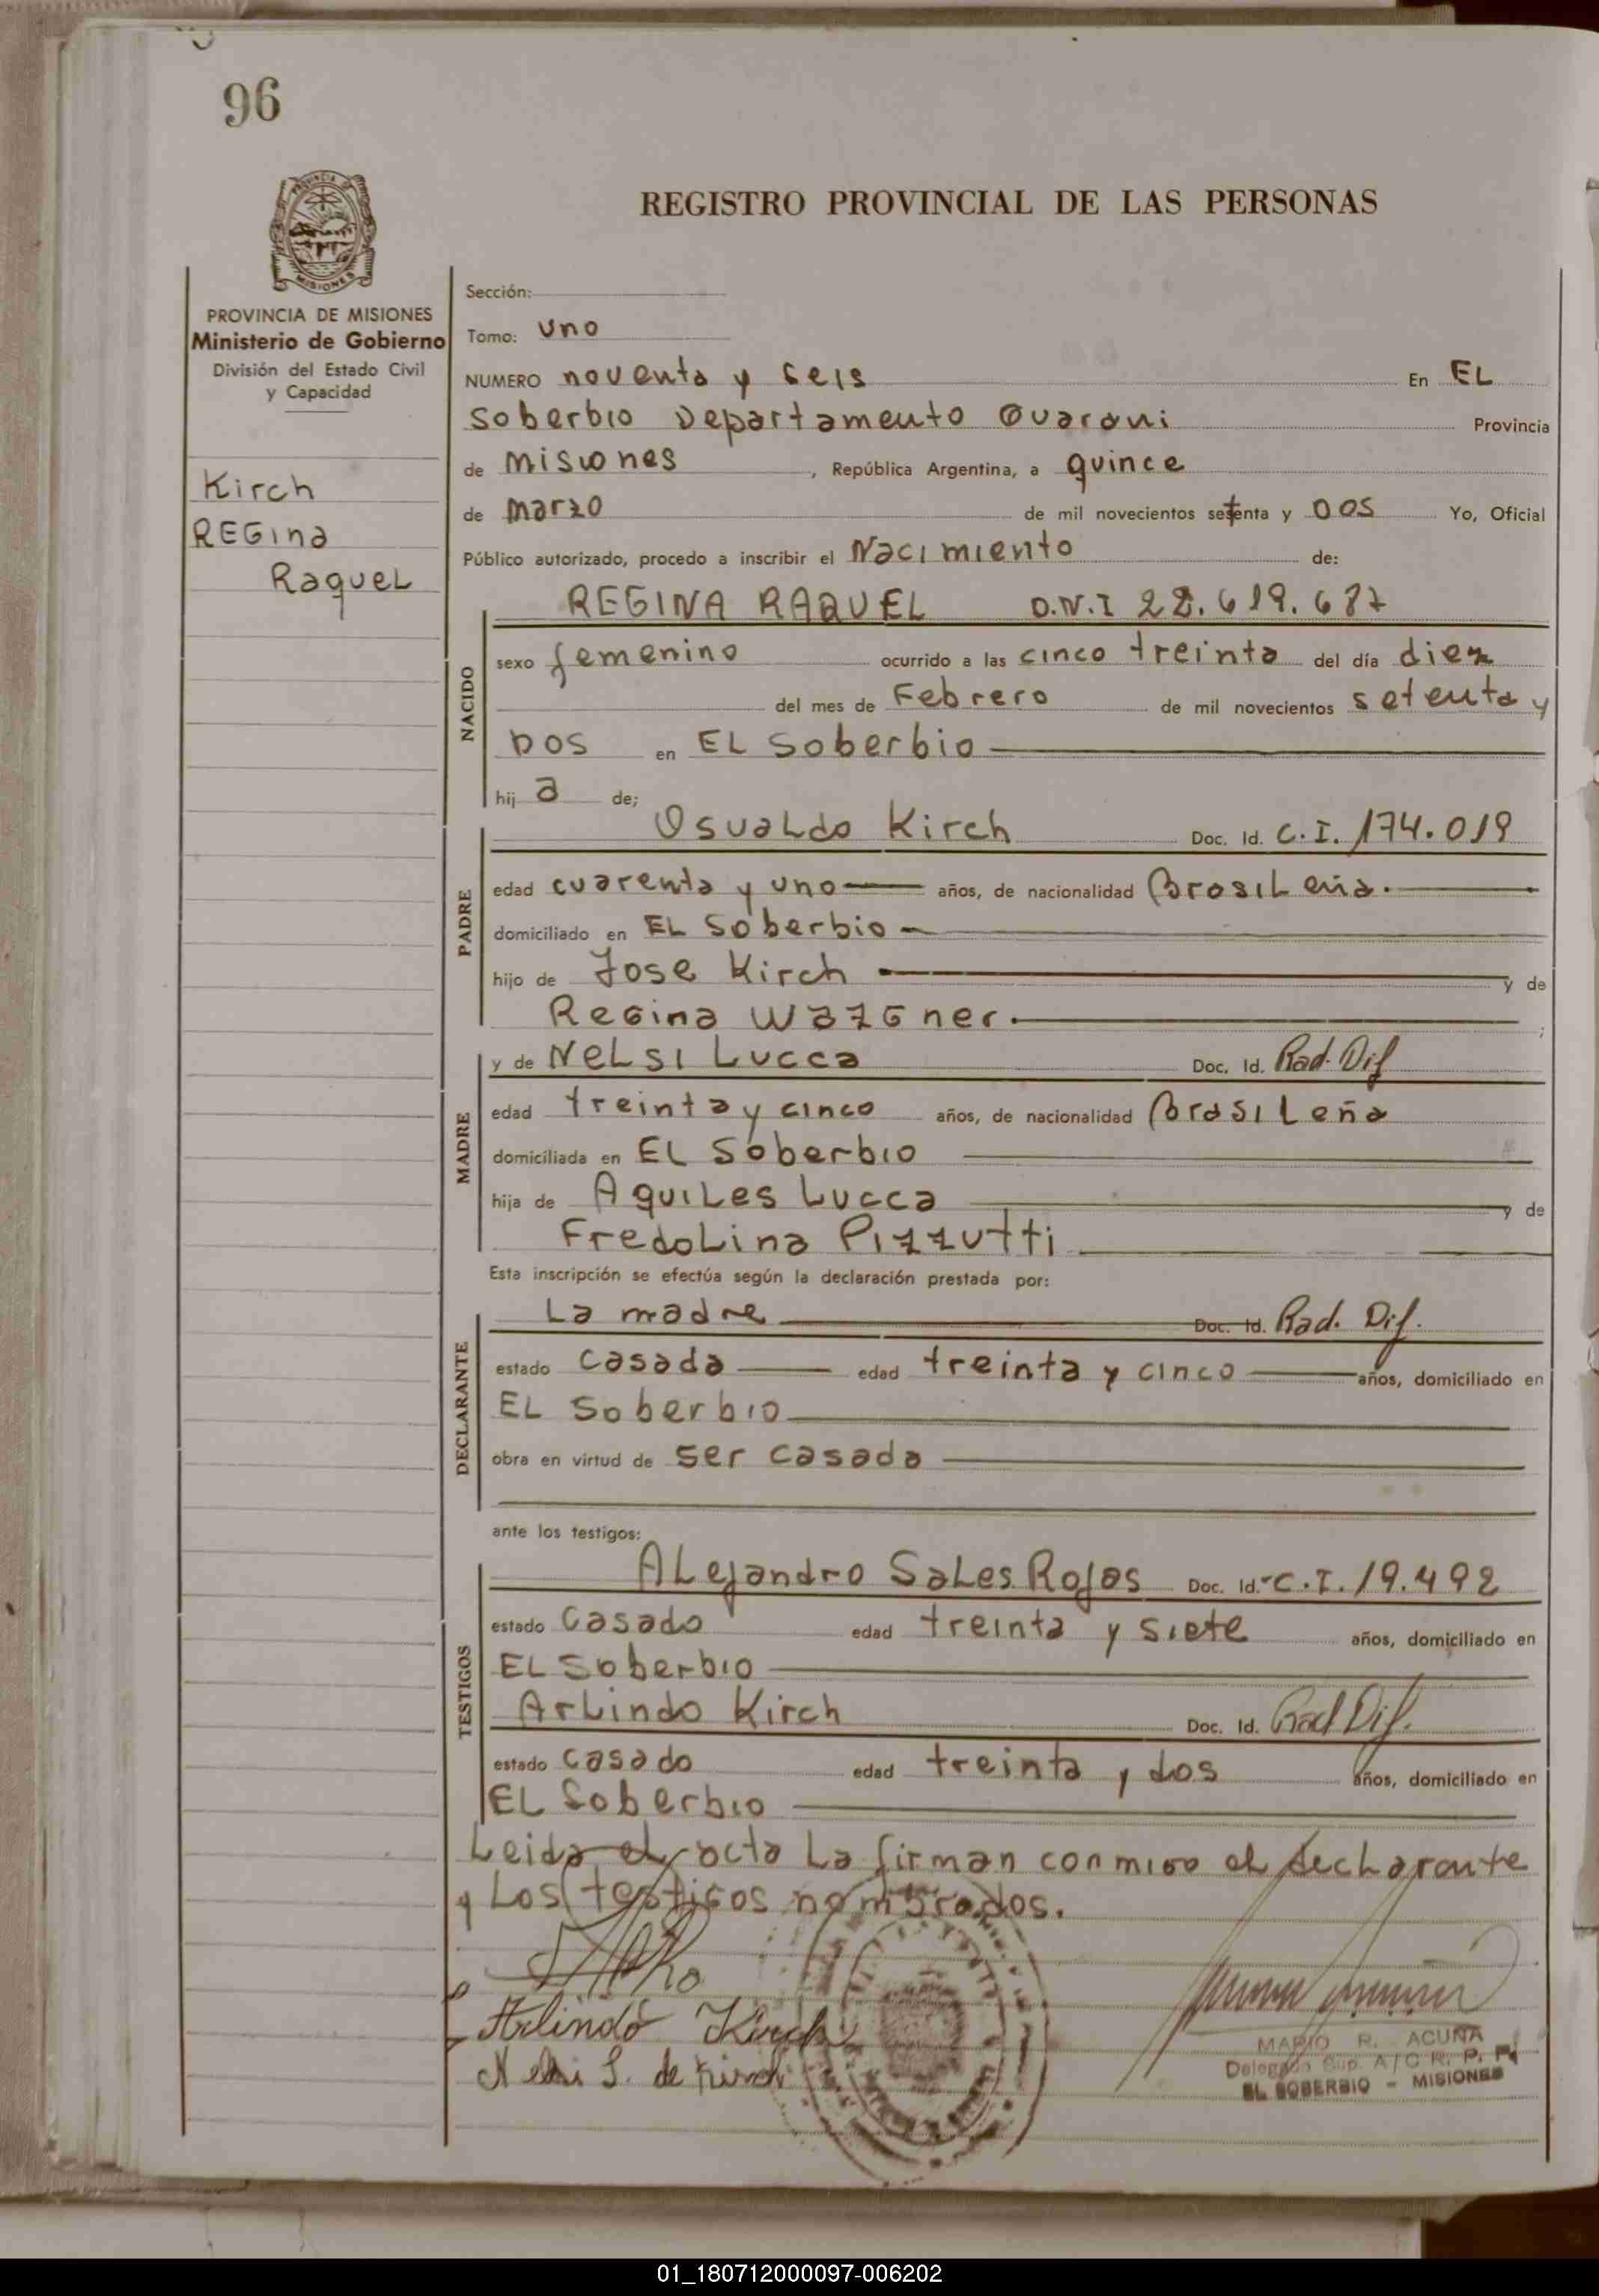 96
REGISTRO PROVINCIAL DE LAS PERSONAS
PROVINCIA DE MISIONES
Ministerio de Gobierno
División del Estado Civil
y Capacidad
Kirch
REGina
Raquel
Sección:
Tomo: uno
NUMERO noventa y seis En EL
Soberbio Departamento Guarani Provincia
de Misiones, República Argentina, a quince
de marzo de mil novecientos setenta y DOS Yo, Oficial
Público autorizado, procedo a inscribir el Nacimiento de:
REGINA RAQUEL D.N.I 22.619.687
NACIDO
sexo femenino ocurrido a las cinco treinta del día diez
del mes de Febrero de mil novecientos setenta y
DOS en EL Soberbio
hij a de;
PADRE
Osvaldo Kirch Doc. Id. C.I. 174.019
edad cuarenta y uno años, de nacionalidad Brasileña.
domiciliado en EL Soberbio
hijo de Jose Kirch y de
Regina Wazgner. ;
MADRE
y de NELSI Lucca Doc. Id. Rad. Dif
edad treinta y cinco años, de nacionalidad Brasileña
domiciliada en EL Soberbio
hija de Aquiles Lucca y de
Fredolina Pizzutti
Esta inscripción se efectúa según la declaración prestada por:
DECLARANTE
La madre Doc. Id. Rad. Dif.
estado casada edad treinta y cinco años, domiciliado en
EL Soberbio
obra en virtud de ser casada
ante los testigos:
TESTIGOS
Alejandro Sales Rojas Doc. Id. C.I. 19.492
estado casado edad treinta y siete años, domiciliado en
EL Soberbio
Arlindo Kirch Doc. Id. Rad Dif.
estado casado edad treinta y dos años, domiciliado en
EL Soberbio
Leida el acta La firman conmigo el declarante
y Los testigos nombrados.
Arlindo Kirch
Nelsi L. de Kirch
MARIO R. ACUÑA
Delegado Sup. A/C R. P. P.
EL SOBERBIO - MISIONES
01_180712000097-006202